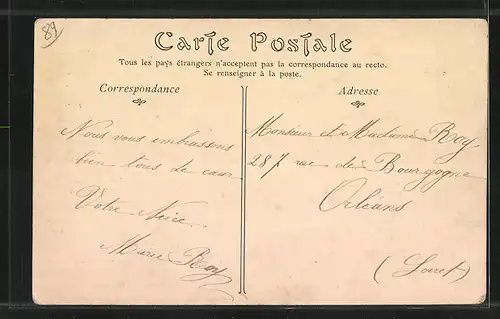 89
Carte Postale
Tous les pays étrangers n'acceptent pas la correspondance au recto.
Se renseigner à la poste.
Correspondance
Nous vous embrassons
bien tous de cœur
Votre Nièce
Marie Roy
Adresse
Monsieur et Madame Roy,
287 rue de Bourgogne
Orléans
(Loiret)